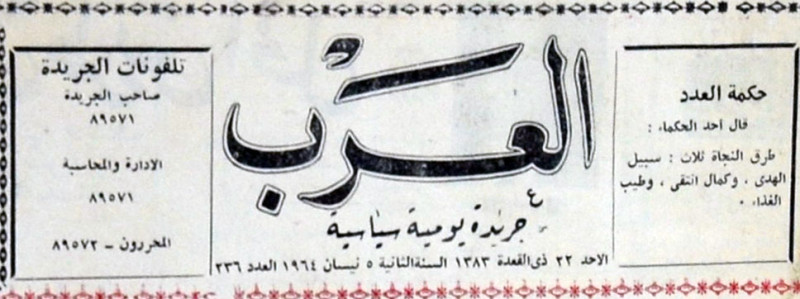 حكمة العدد
قال احد الحكماء :
طرق النجاة ثلاث : سبيل
الهدى ، وكمال التقى ، وطيب
الغذاء .
العرب
جريدة يومية سياسية
الاحد ٢٢ ذي القعدة ١٣٨٣ السنة الثانية ٥ نيسان ١٩٦٤ العدد ٢٣٦
تلفونات الجريدة
صاحب الجريدة
٨٩٥٧١
الادارة والمحاسبة
٨٩٥٧١
المحررون - ٨٩٥٧٢